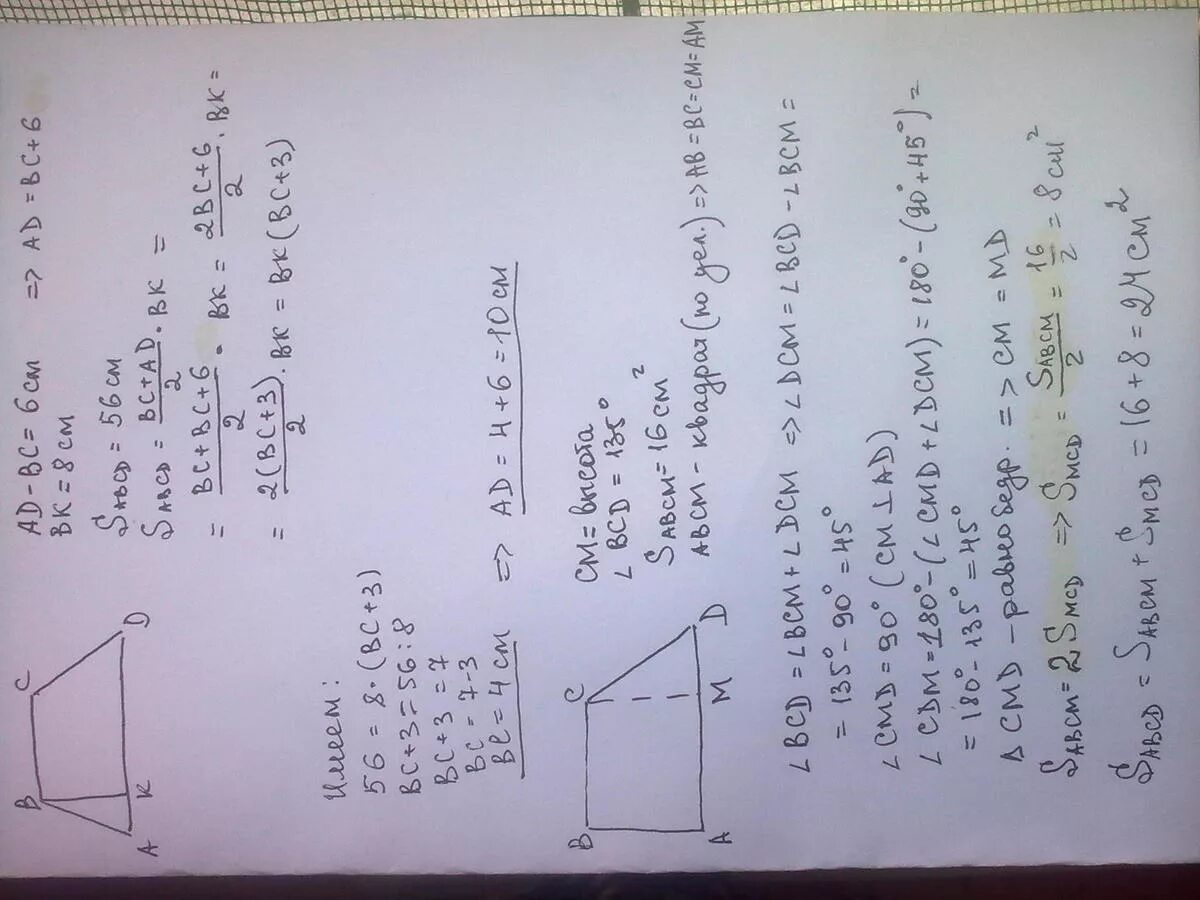 AD - BC = 6 см => AD = BC + 6
BK = 8 см
S ABCD = 56 см
S ABCD = BC + AD / 2 · BK =
= BC + BC + 6 / 2 · BK = 2BC + 6 / 2 · BK =
= 2(BC + 3) / 2 · BK = BK (BC + 3)
B C
A K D
Имеем:
56 = 8 · (BC + 3)
BC + 3 = 56 : 8
BC + 3 = 7
BC = 7 - 3
BC = 4 см => AD = 4 + 6 = 10 см
B C
A M D
CM = высота
∠BCD = 135°
S ABCM = 16 см²
ABCM - квадрат (по усл.) => AB = BC = CM = AM
∠BCD = ∠BCM + ∠DCM => ∠DCM = ∠BCD - ∠BCM =
= 135° - 90° = 45°
∠CMD = 90° (CM ⊥ AD)
∠CDM = 180° - (∠CMD + ∠DCM) = 180° - (90° + 45°) =
= 180° - 135° = 45°
Δ CMD - равнобедр. => CM = MD
S ABCM = 2 S MCD => S MCD = S ABCM / 2 = 16 / 2 = 8 см²
S ABCD = S ABCM + S MCD = 16 + 8 = 24 см²